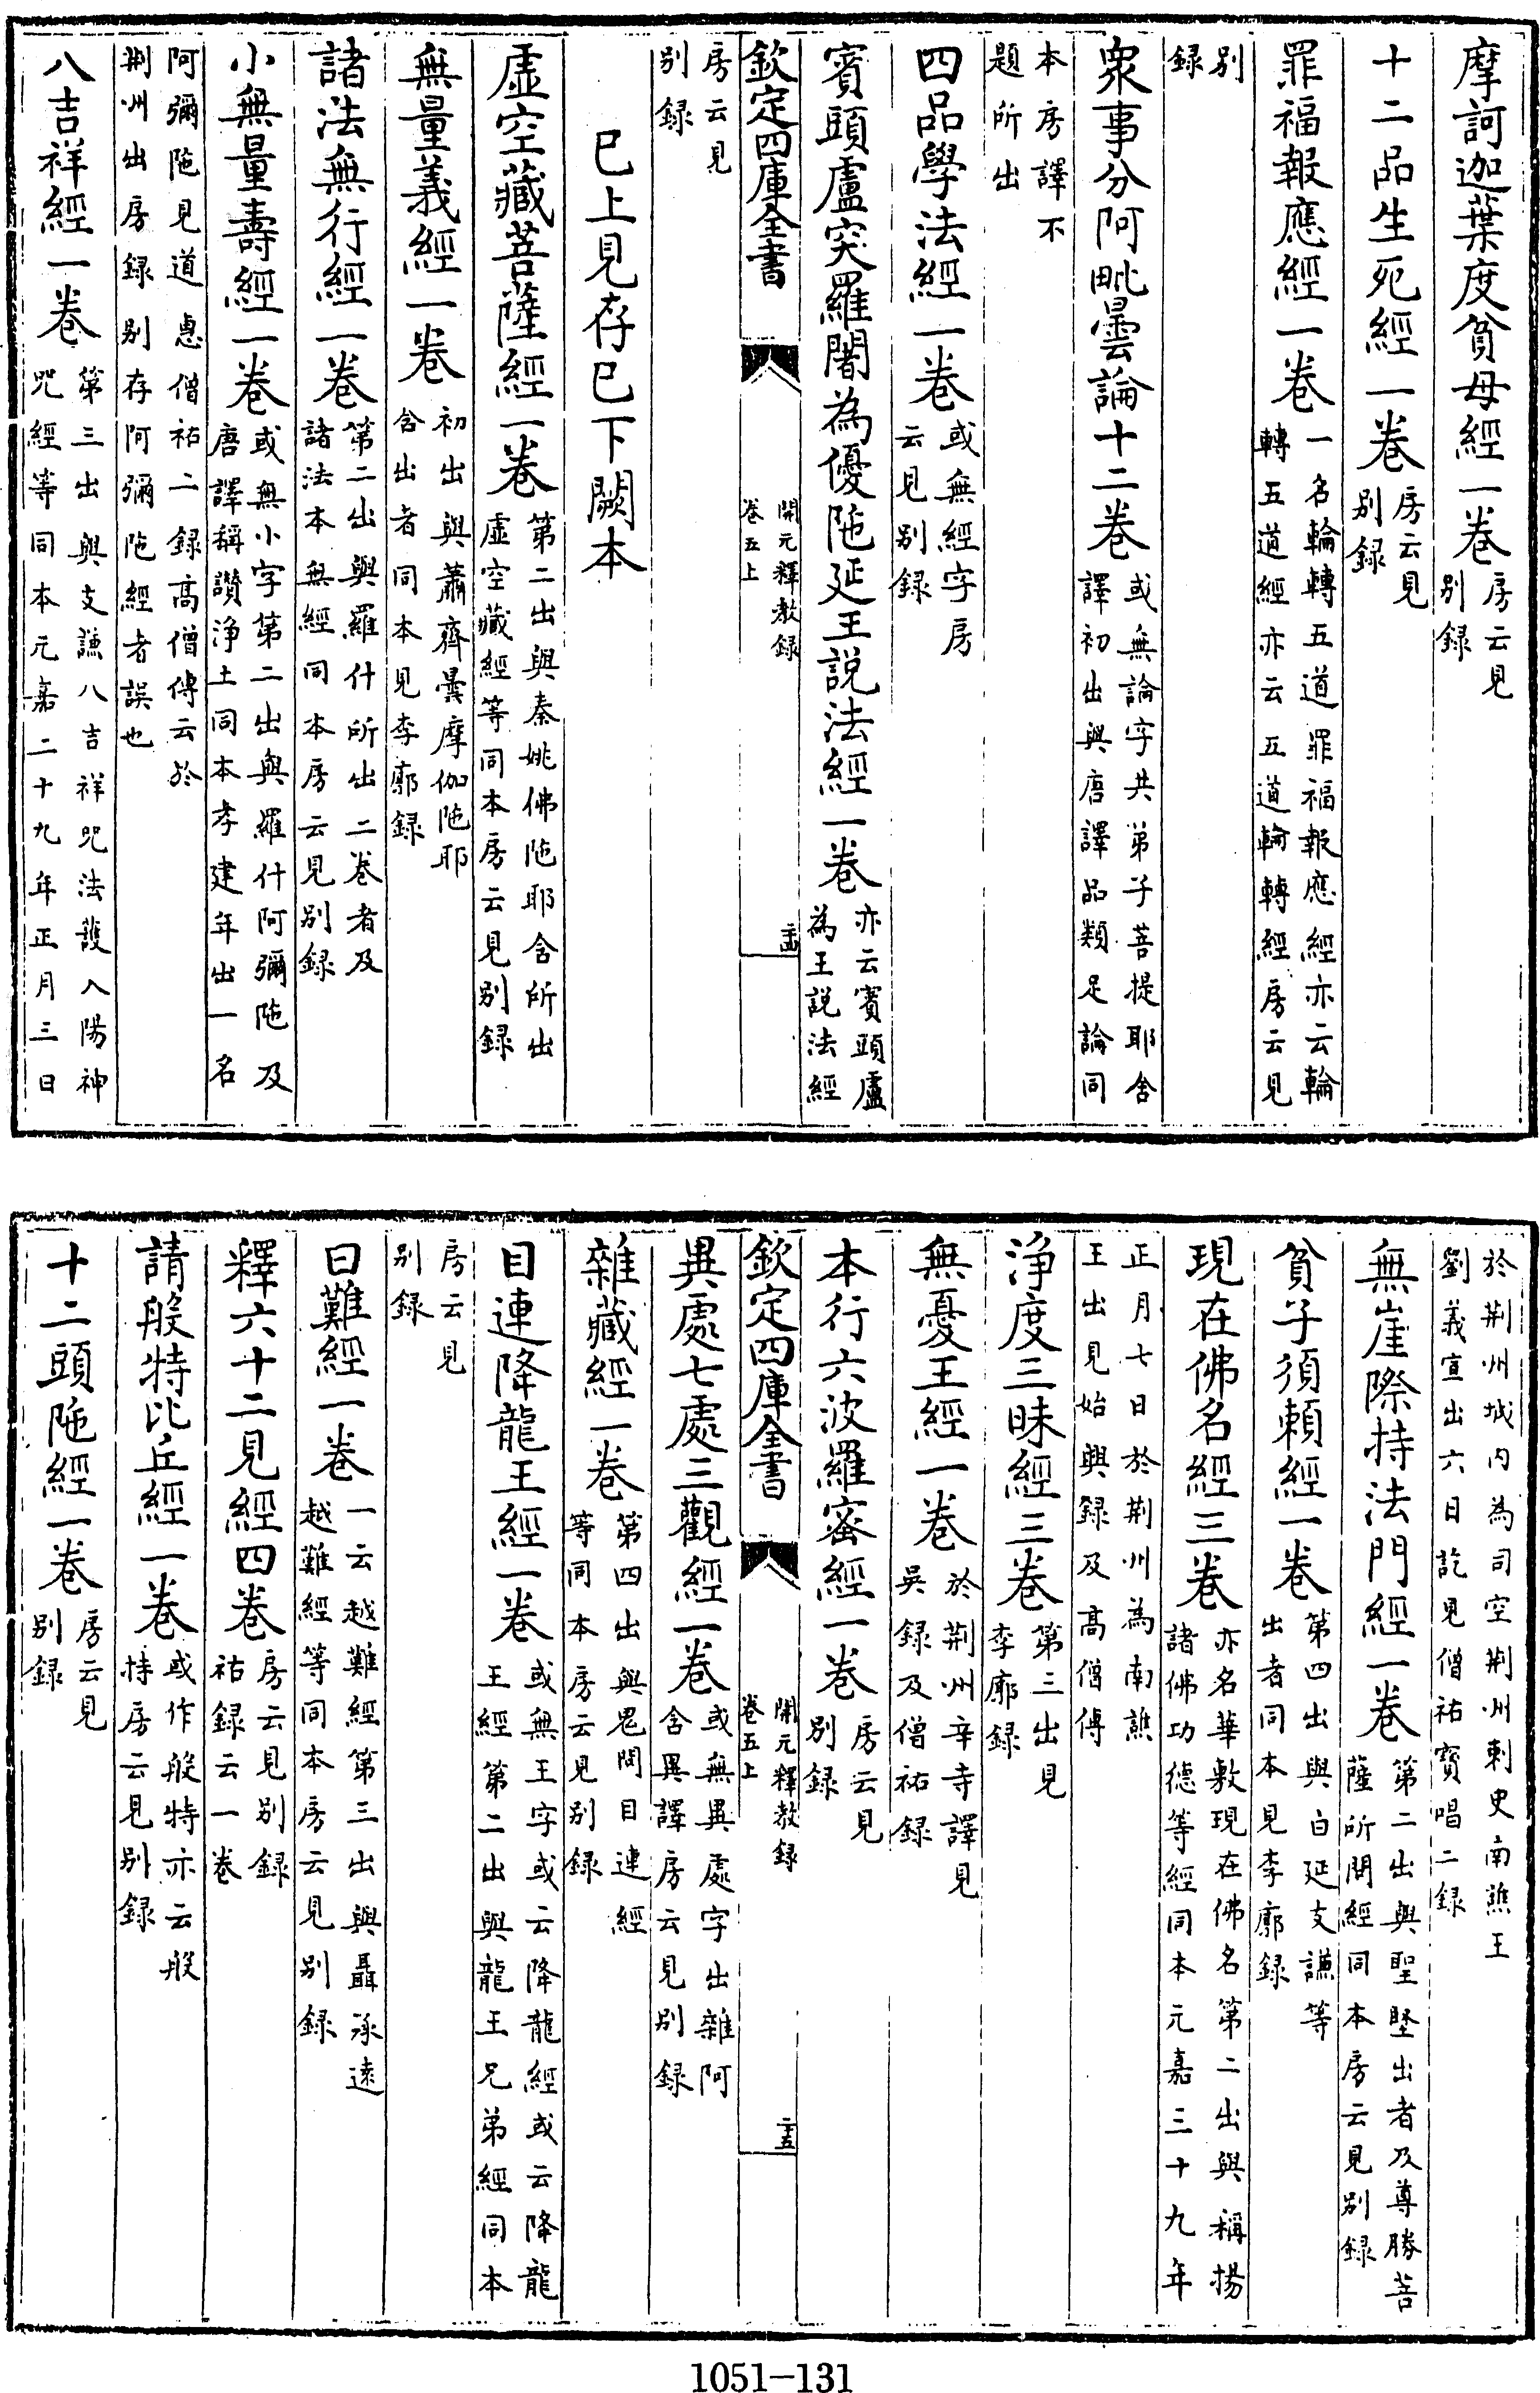 摩訶迦葉度貧母經一卷房云見別録
十二品生死經一卷房云見別録
罪福報應經一卷一名輪轉五道罪福報應經亦云輪轉五道經亦云五道輪轉經房云見
別録
衆事分阿毗曇論十二卷或無論字共弟子菩提耶舍譯初出與唐譯品類足論同
本房譯不題所出
四品學法經一卷或無經字房云見別録
賓頭盧突羅闍為優陁延王説法經一卷亦云賓頭盧為王説法經
欽定四庫全書
開元釋教録卷五上
二十四
房云見別録
已上見存已下闕本
虛空藏菩薩經一卷第二出與秦姚佛陁耶舍所出虛空藏經等同本房云見別録
無量義經一卷初出與蕭齊曇摩伽陁耶舍出者同本見李廓録
諸法無行經一卷第二出與羅什所出二卷者及諸法本無經同本房云見別録
小無量壽經一卷或無小字第二出與羅什阿彌陁及唐譯稱讚浄土同本孝建年出一名
阿彌陁見道惠僧祐二録高僧傳云於荆州出房録別存阿彌陁經者誤也
八吉祥經一卷第三出與支謙八吉祥咒法護八陽神咒經等同本元嘉二十九年正月三日
於荆州城内為司空荆州刺史南譙王劉義宣出六日訖見僧祐寳唱二録
無崖際持法門經一卷第二出與聖堅出者及尊勝菩薩所問經同本房云見別録
貧子須賴經一卷第四出與白延支謙等出者同本見李廓録
現在佛名經三卷亦名華敷現在佛名第二出與稱揚諸佛功德等經同本元嘉三十九年
正月七日於荆州為南譙王出見始興録及高僧傳
浄度三昧經三卷第三出見李廓録
無憂王經一卷於荆州辛寺譯見吳録及僧祐録
本行六波羅蜜經一卷房云見別録
欽定四庫全書
開元釋教録卷五上
二十五
異處七處三觀經一卷或無異處字出雜阿含異譯房云見別録
雜藏經一卷第四出與鬼問目連經等同本房云見別録
目連降龍王經一卷或無王字或云降龍經或云降龍王經第二出與龍王兄弟經同本
房云見別録
曰難經一卷一云越難經第三出與聶承遠越難經等同本房云見別録
釋六十二見經四卷房云見別録祐録云一卷
請般特比丘經一卷或作般特亦云般持房云見別録
十二頭陁經一卷房云見別録
1051-131